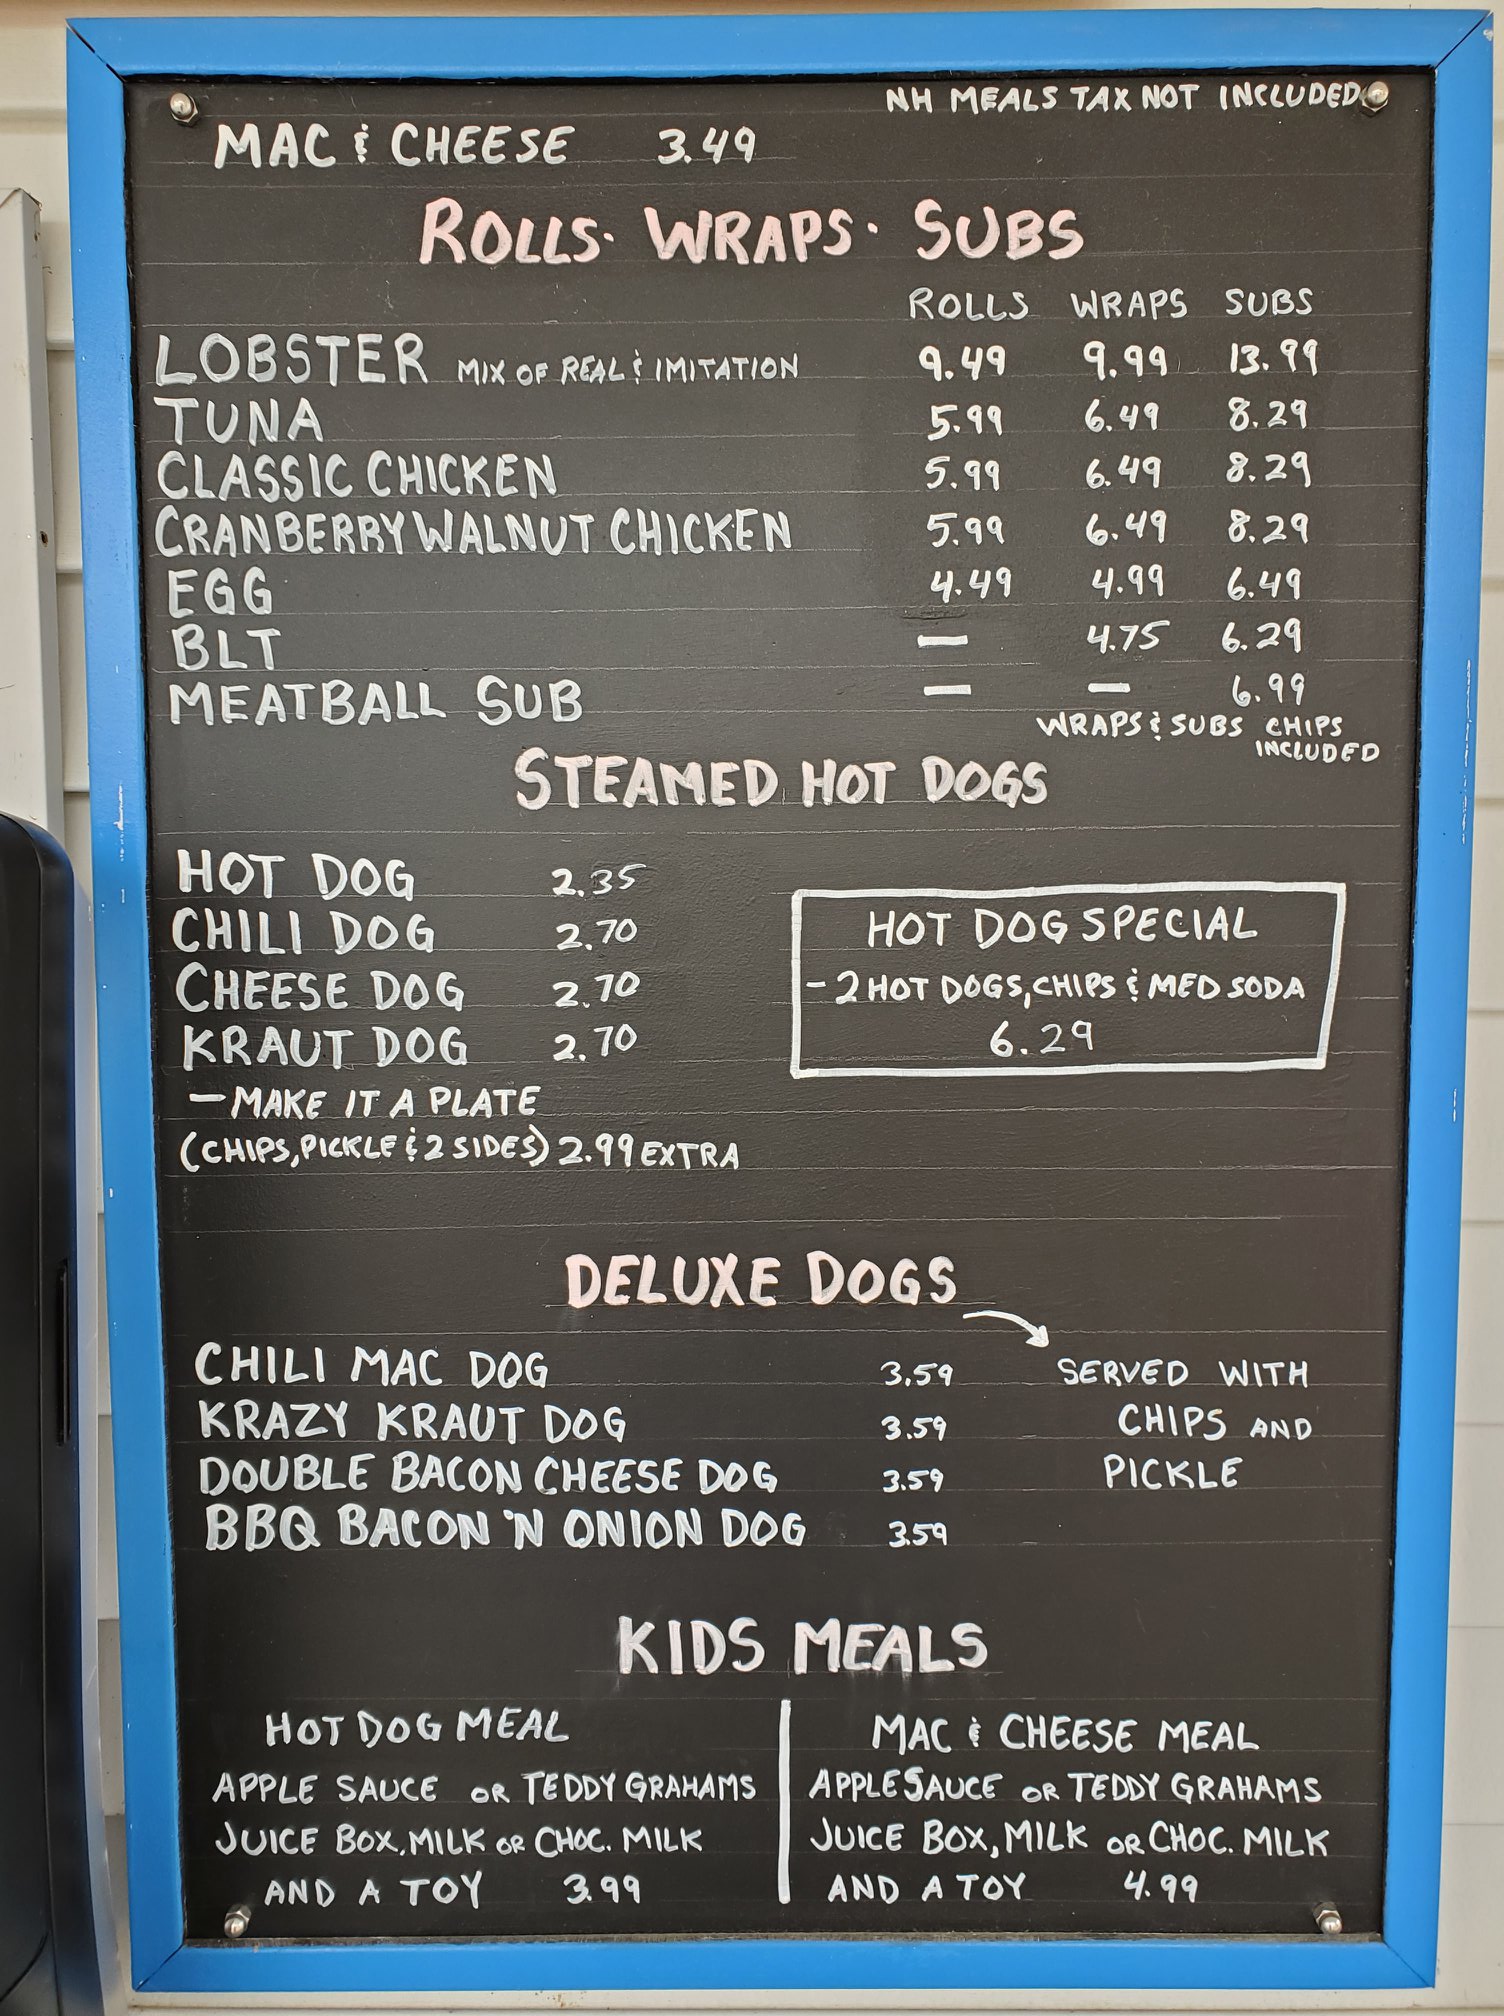 NH MEALS TAX NOT INCLUDED
MAC & CHEESE 3.49
ROLLS · WRAPS · SUBS
ROLLS WRAPS SUBS
LOBSTER MIX OF REAL & IMITATION 9.49 9.99 13.99
TUNA 5.99 6.49 8.29
CLASSIC CHICKEN 5.99 6.49 8.29
CRANBERRY WALNUT CHICKEN 5.99 6.49 8.29
EGG 4.49 4.99 6.49
BLT — 4.75 6.29
MEATBALL SUB — — 6.99
WRAPS & SUBS CHIPS
INCLUDED
STEAMED HOT DOGS
HOT DOG 2.35
CHILI DOG 2.70
CHEESE DOG 2.70
KRAUT DOG 2.70
— MAKE IT A PLATE
(CHIPS, PICKLE & 2 SIDES) 2.99 EXTRA
HOT DOG SPECIAL
- 2 HOT DOGS, CHIPS & MED SODA
6.29
DELUXE DOGS
CHILI MAC DOG 3.59
KRAZY KRAUT DOG 3.59
DOUBLE BACON CHEESE DOG 3.59
BBQ BACON 'N ONION DOG 3.59
SERVED WITH
CHIPS AND
PICKLE
KIDS MEALS
HOT DOG MEAL
APPLE SAUCE OR TEDDY GRAHAMS
JUICE BOX, MILK OR CHOC. MILK
AND A TOY 3.99
MAC & CHEESE MEAL
APPLESAUCE OR TEDDY GRAHAMS
JUICE BOX, MILK OR CHOC. MILK
AND A TOY 4.99